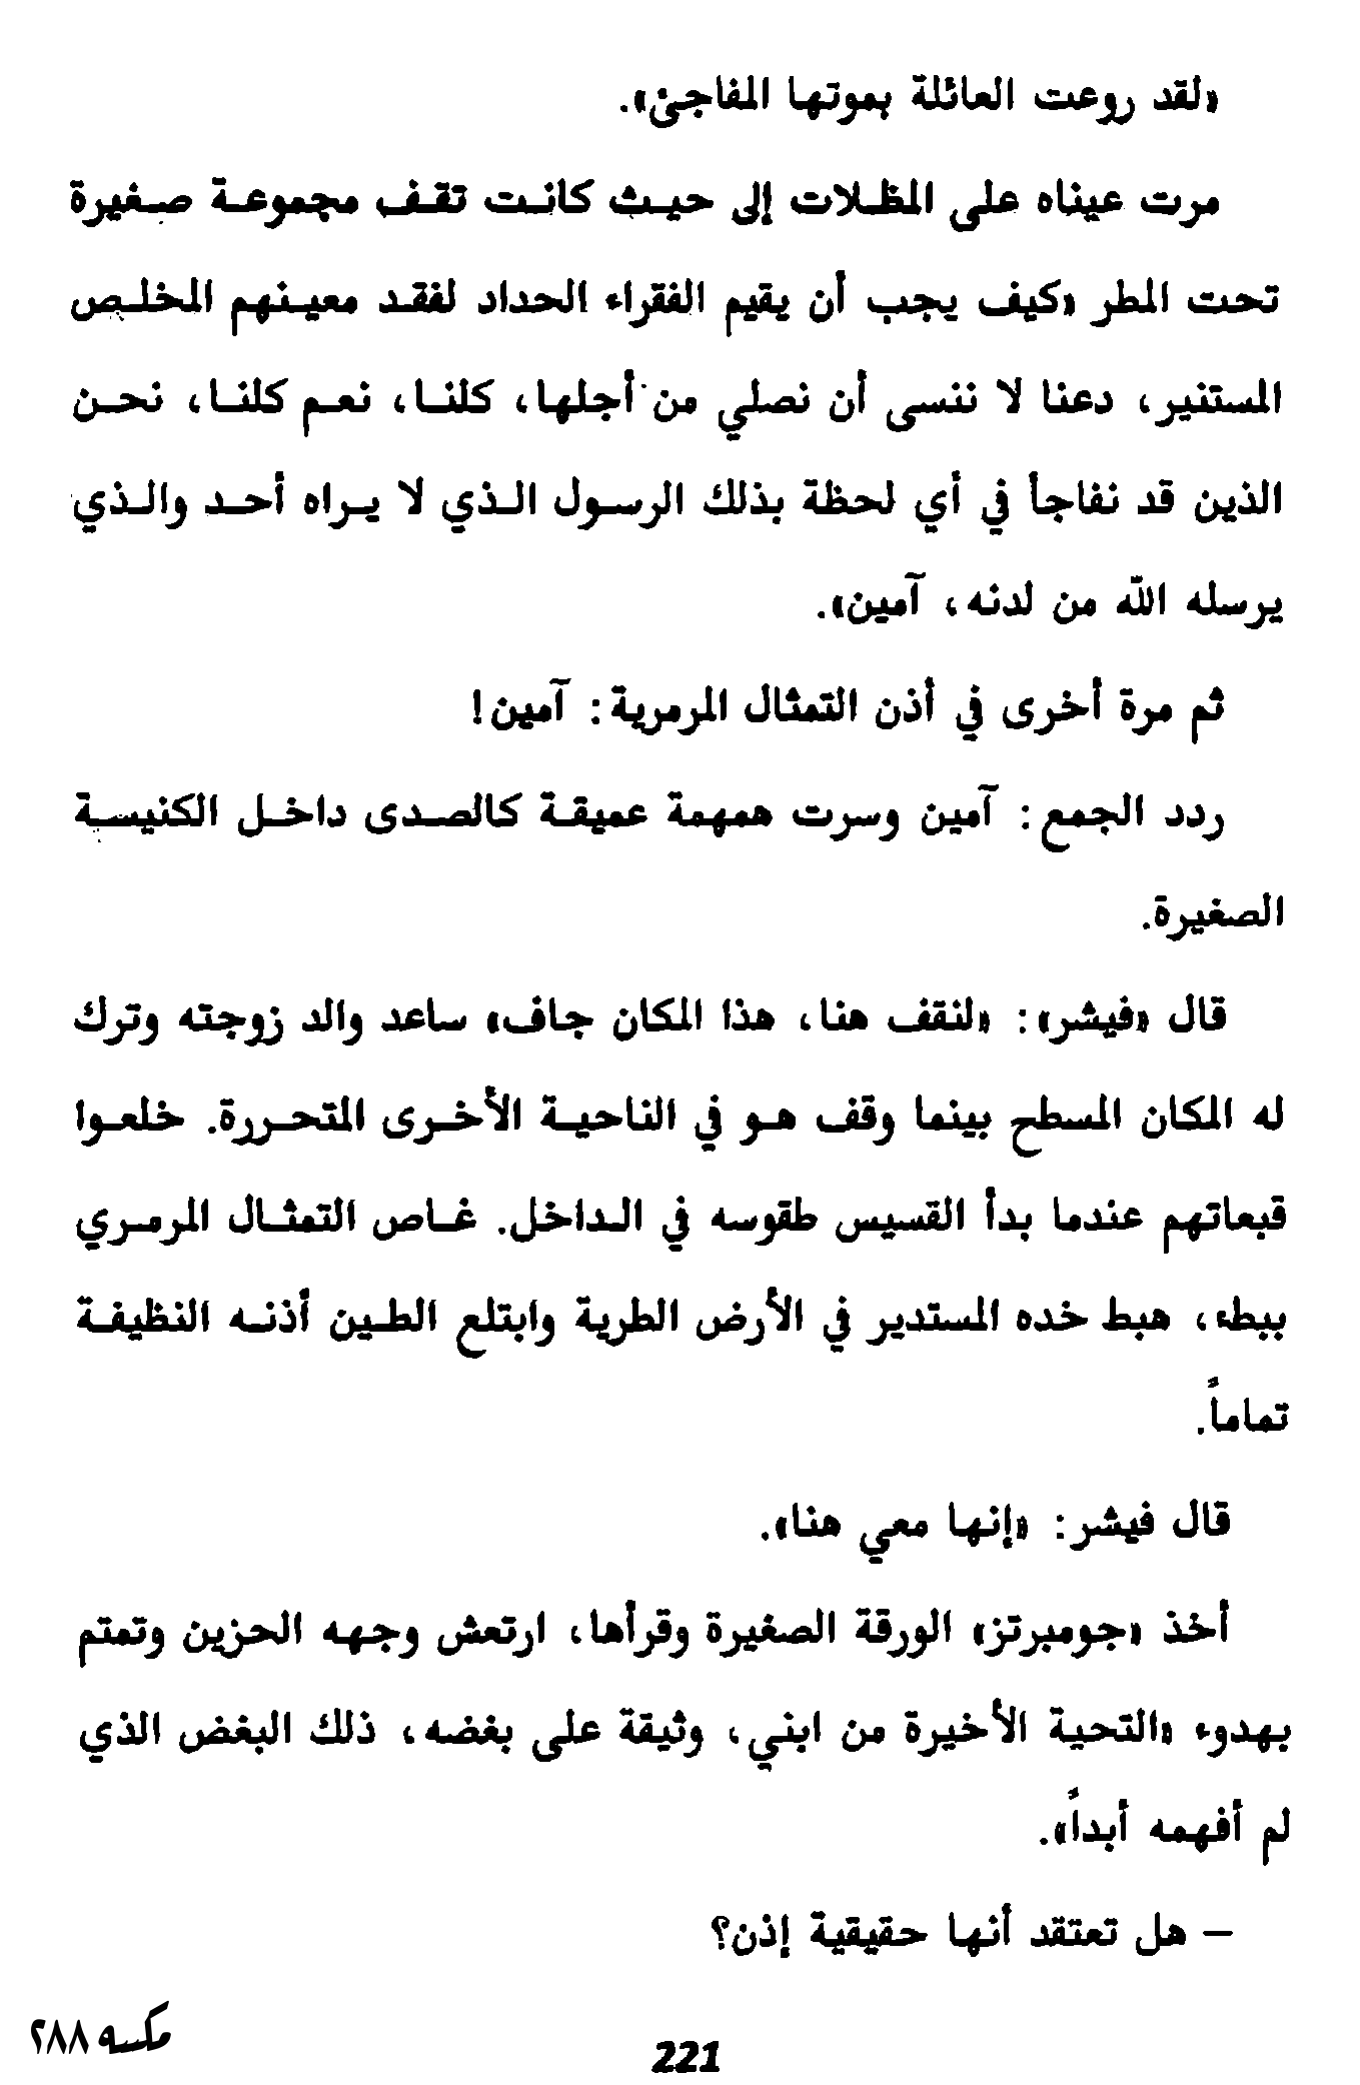 «لقد روعت العائلة بموتها المفاجئ».
مرت عيناه على المظلات إلى حيث كانت تقف مجموعة صغيرة
تحت المطر «كيف يجب أن يقيم الفقراء الحداد لفقد معينهم المخلص
المستنير، دعنا لا ننسى أن نصلي من أجلها، كلنا، نعم كلنا، نحن
الذين قد نفاجأ في أي لحظة بذلك الرسول الذي لا يراه أحد والذي
يرسله الله من لدنه، آمين».
ثم مرة أخرى في أذن التمثال المرمرية: آمين!
ردد الجمع: آمين وسرت همهمة عميقة كالصدى داخل الكنيسة
الصغيرة.
قال «فيشر»: «لنقف هنا، هذا المكان جاف» ساعد والد زوجته وترك
له المكان المسطح بينما وقف هو في الناحية الأخرى المتحررة. خلعوا
قبعاتهم عندما بدأ القسيس طقوسه في الداخل. غاص التمثال المرمري
ببطء، هبط خده المستدير في الأرض الطرية وابتلع الطين أذنه النظيفة
تماماً.
قال فيشر: «إنها معي هنا».
أخذ «جومبرتز» الورقة الصغيرة وقرأها، ارتعش وجهه الحزين وتمتم
بهدوء «التحية الأخيرة من ابني، وثيقة على بغضه، ذلك البغض الذي
لم أفهمه أبداً».
– هل تعتقد أنها حقيقية إذن؟
221
٢٨٨